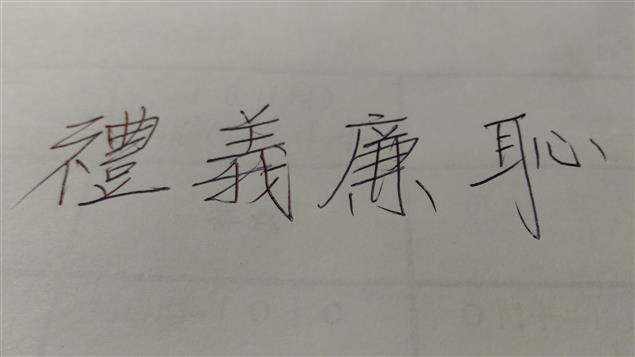 禮義廉恥